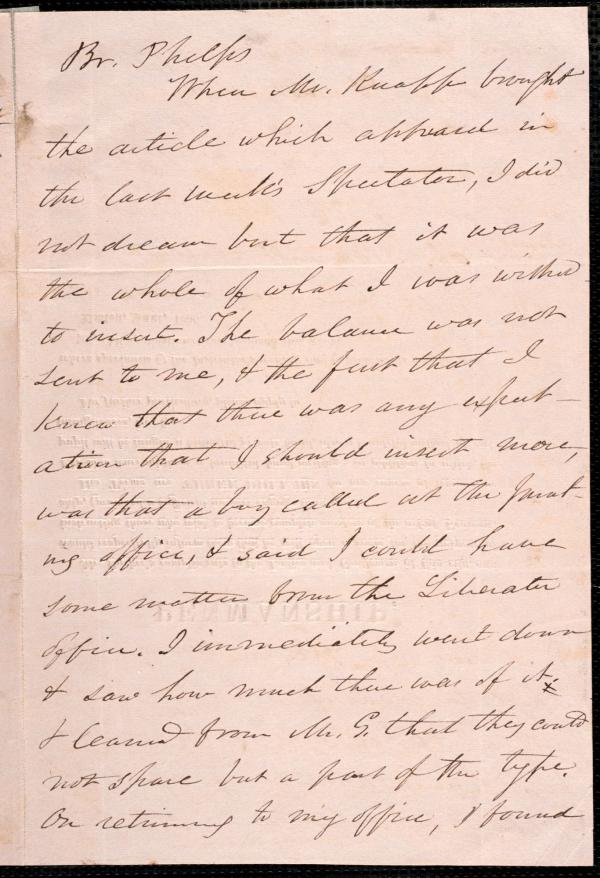 Br. Phelps
When Mr. Knapp brought
the article which appeard in
the last week's Spectator, I did
not dream but that it was
the whole of what I was wished
to insert. The balance was not
sent to me, & the first that I
knew that there was any expect-
ation that I should insert more,
was that a boy called at the print-
ing office, & said I could have
some matter from the Liberator
office. I immediately went down
& saw how much there was of it,
& learned from Mr. G. that they could
not spare but a part of the type.
On returning to my office, I found
PENMANSHIP.